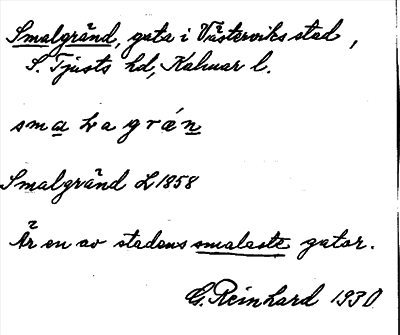 Smalgränd, gata i Västerviks stad,
S. Tjusts hd, Kalmar l.
sma la grän
Smalgränd L 1858
Är en av stadens smalaste gator.
G. Reinhard 1930